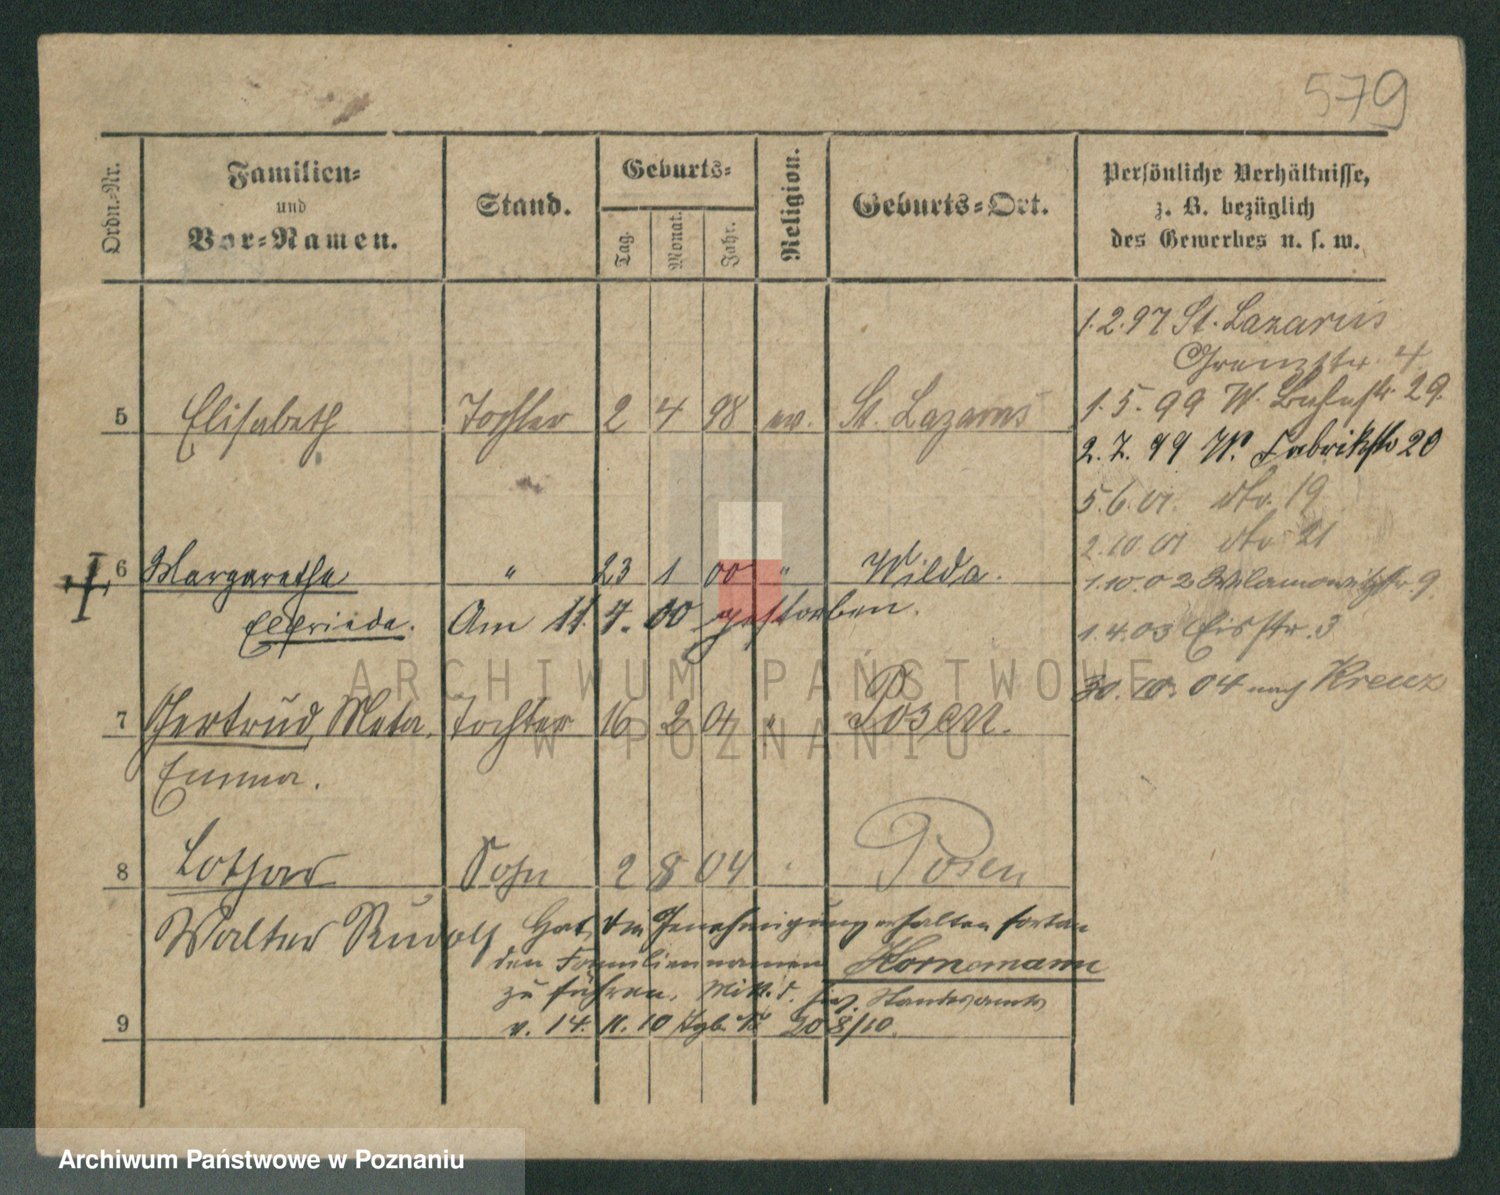 579
Ordn.-Nr.
Familien-
und
Vor-Namen.
Stand.
Geburts-
Tag.
Monat.
Jahr.
Religion.
Geburts-Ort.
Persönliche Verhältnisse,
z. B. bezüglich
des Gewerbes u. s. w.
1.2.97 St. Lazarus
Grenzstr. 4
1.5.99 W. 29.
5 Elisabeth Tochter 2 4 98 ev. St. Lazarus
2.7.99 W. Fabrikstr 20
5.6.01. dto. 19
2.10.01 dto 21
6 Margarethe " 23 1 00 " Wilda.
1.10.02 Wilamowitzstr. 9.
Elfriede. Am 11.7.00 gestorben.
1.4.03 Eisstr. 3
30.10.04 nach Kreuz
ARCHIWUM PAŃSTWOWE
7 Gertrud, Meta, Tochter 16 2 04 " Posen.
W POZNANIU
Emma.
8 Lothar Sohn 2 8 04 Posen
Walter Rudolf Hat die Genehmigung erhalten fortan
den Familiennamen Hornemann
zu führen. Mitt. d. Standesamts
9 v. 14. 11. 10 Tgb. No 208/10.
Archiwum Państwowe w Poznaniu